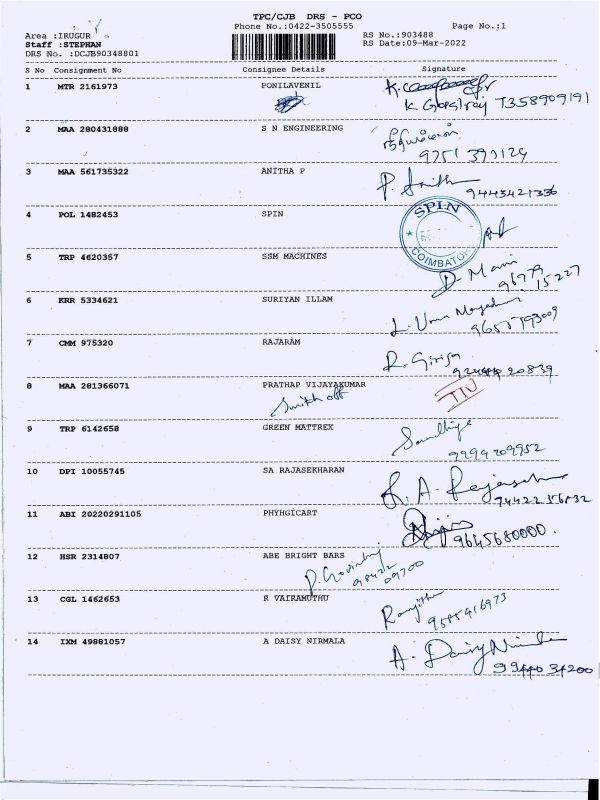 TPC/CJB DRS - PCO
Phone No.:0422-3505555 Page No.:1
Area :IRUGUR RS No.:903488
Staff :STEPHAN RS Date:09-Mar-2022
DRS No. :DCJB90348801
S No Consignment No Consignee Details Signature
1 MTR 2161973 PONILAVENIL
K. Gopalraj 7358909191
2 MAA 280431888 S N ENGINEERING
3 MAA 561735322 ANITHA P
P. Anitha 9445421336
4 POL 1482453 SPIN
SPIN COIMBATORE
5 TRP 4620357 SSM MACHINES
D. Mani 96779 15227
6 KRR 5334621 SURIYAN ILLAM
7 CMM 975320 RAJARAM
R. Girija
8 MAA 281366071 PRATHAP VIJAYAKUMAR
9 TRP 6142658 GREEN MATTREX
9994209952
10 DPI 10055745 SA RAJASEKHARAN
11 ABI 20220291105 PHYHGICART
9645680000.
12 HSR 2314807 ABE BRIGHT BARS
P. Govindraj 98422 09700
13 CGL 1462653 R VAIRAMUTHU
Ranjitha 9585416973
14 IXM 49881057 A DAISY NIRMALA
A. Daisy Nirmala
99440 34200